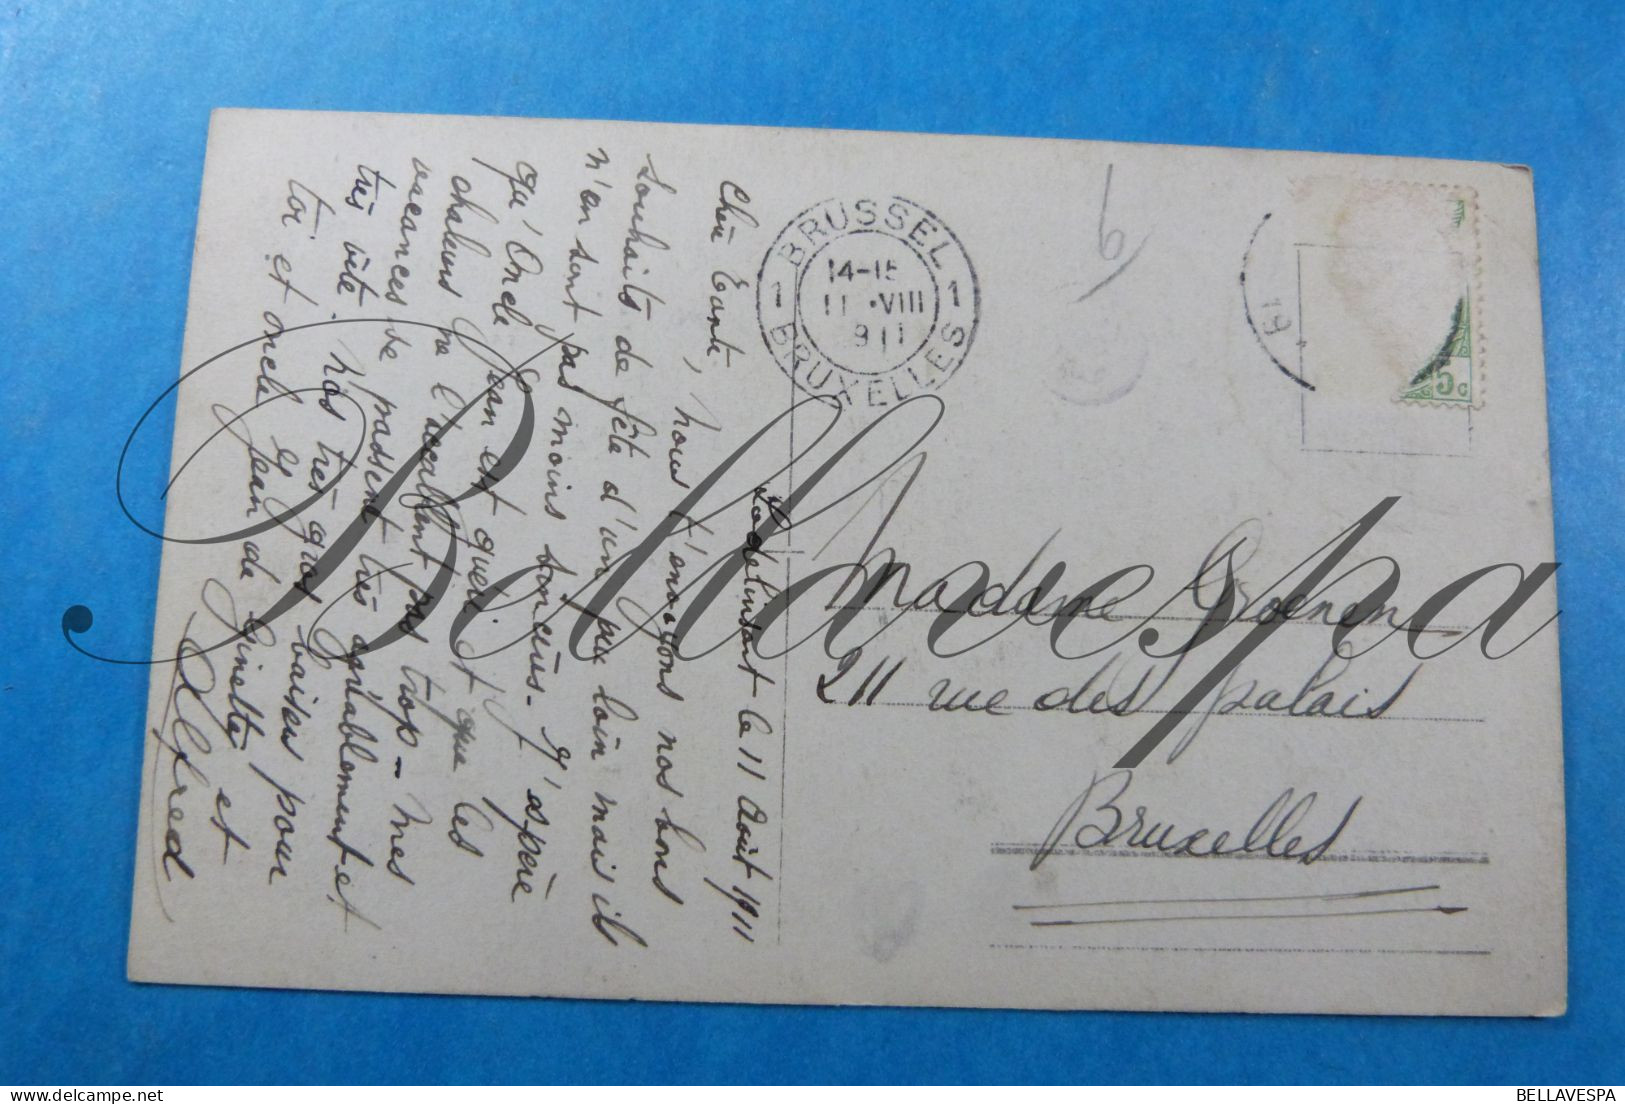 Ladelinsart le 11 Août 1911
Chère Tante,
nous t'envoyons nos bons
souhaits de fête d'un peu loin mais ils
n'en sont pas moins sincères. J'espère
qu'Oncle Jean est guéri et que les
chaleurs ne l'accablent pas trop - mes
vacances se passent très agréablement et
très vite. Nos très gros baisers pour
toi et oncle Jean de Ginette et
Alfred
BRUSSEL
1 14-15 1
11 •VIII
1911
BRUXELLES
6
19
5c
Madame Groenen
211 rue des palais
Bruxelles
Bellavespa
BELLAVESPA